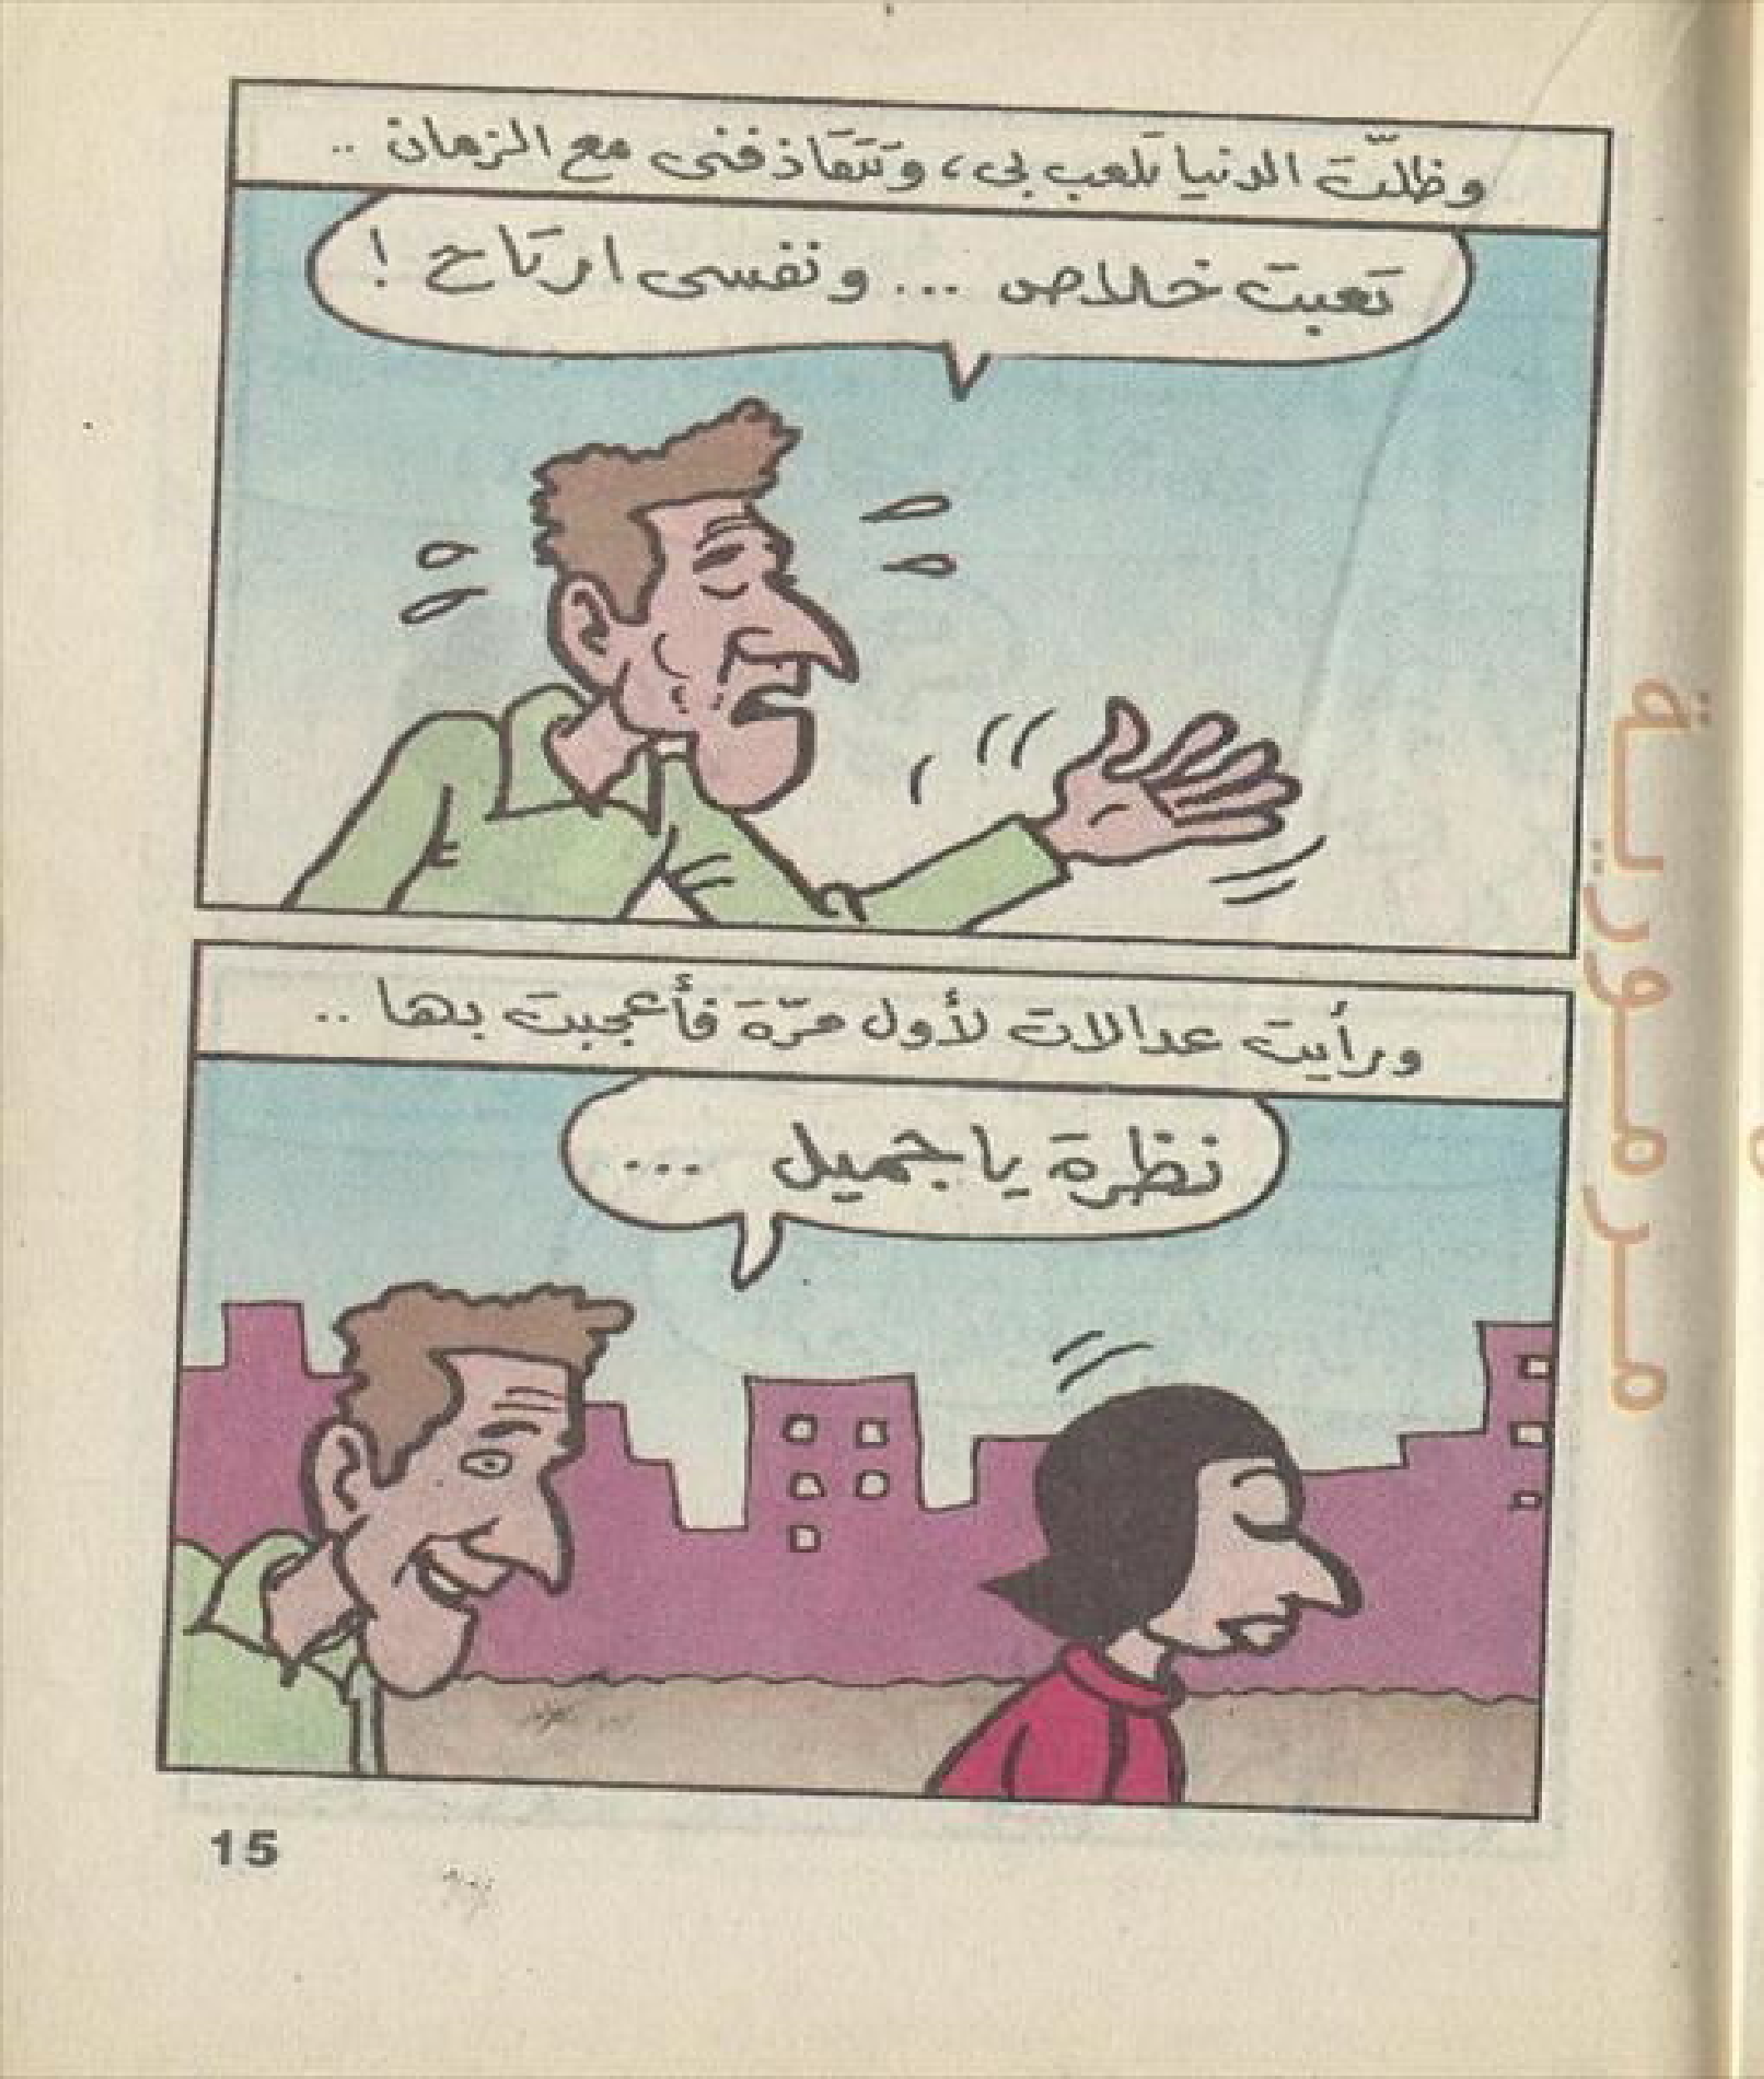 وظلّت الدنيا تلعب بى، وتتقاذفنى مع الزمان ..
تعبت خلاص ... ونفسى ارتاح !
ورأيت عدالات لأول مرّة فأعجبت بها ..
نظرة يا جميل ...
مرمورية
15